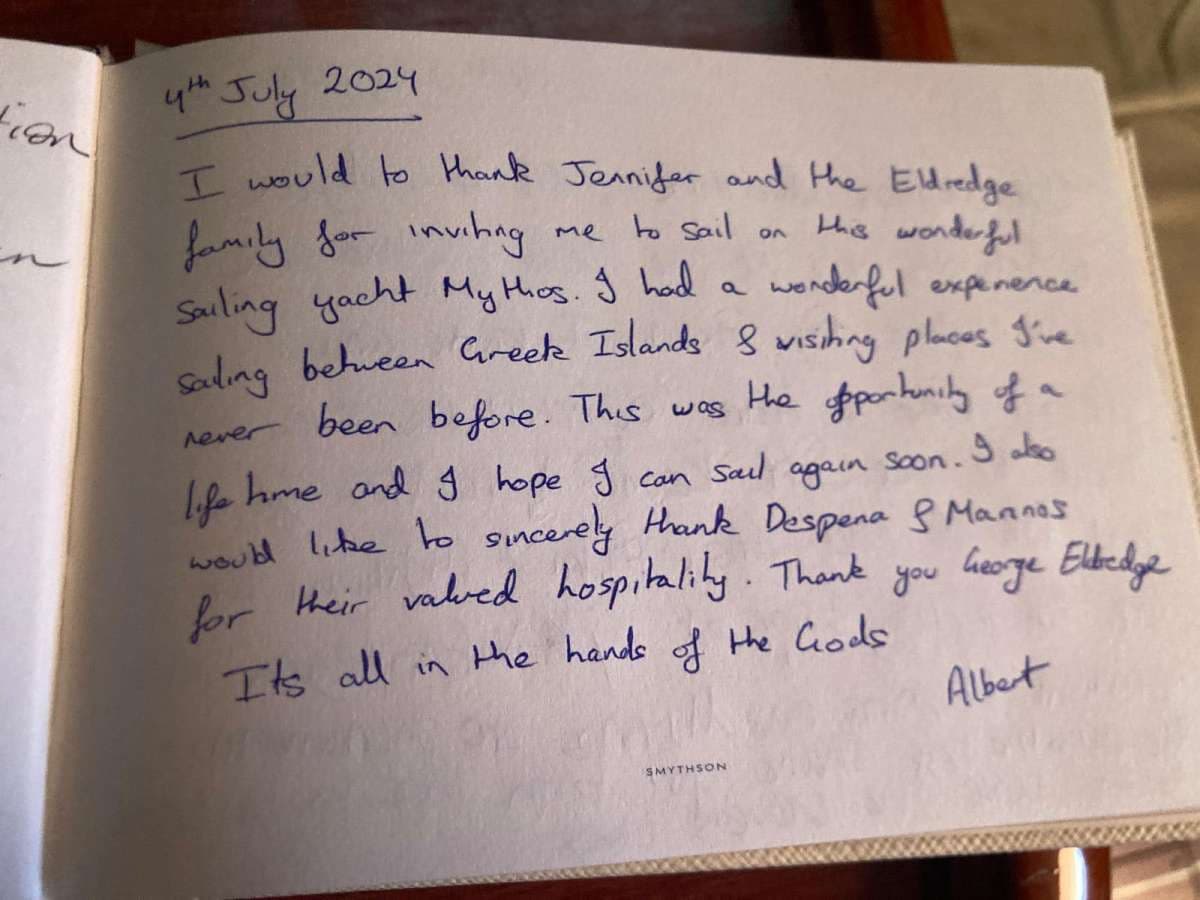 tion
n
4th July 2024
I would to thank Jennifer and the Eldredge
family for inviting me to sail on this wonderful
sailing yacht Mythos. I had a wonderful experience
sailing between Greek Islands & visiting places I've
never been before. This was the opportunity of a
life time and I hope I can sail again soon. I also
would like to sincerely thank Despena & Mannos
for their valued hospitality. Thank you George Eldredge
Its all in the hands of the Gods
Albert
SMYTHSON